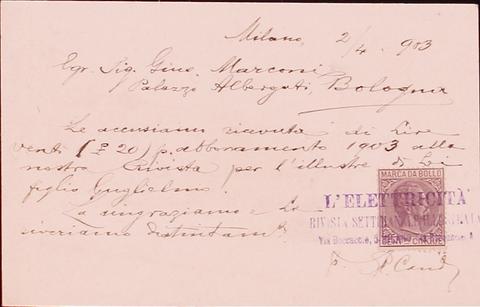 Milano, 2/4 - 903
Egr. Sig. Gius. Marconi
Palazzo Albergati, Bologna
Le accusiamo ricevuta di Lire
venti (£ 20) p. abbonamento 1903 alla
nostra Rivista per l'illustre di Lei
figlio Guglielmo.
La ringraziamo e La
riveriamo distintamte
MARCA DA BOLLO
L'ELETTRICITÀ
RIVISTA SETTIMANALE ILLUSTRATA
Via Boccaccio,